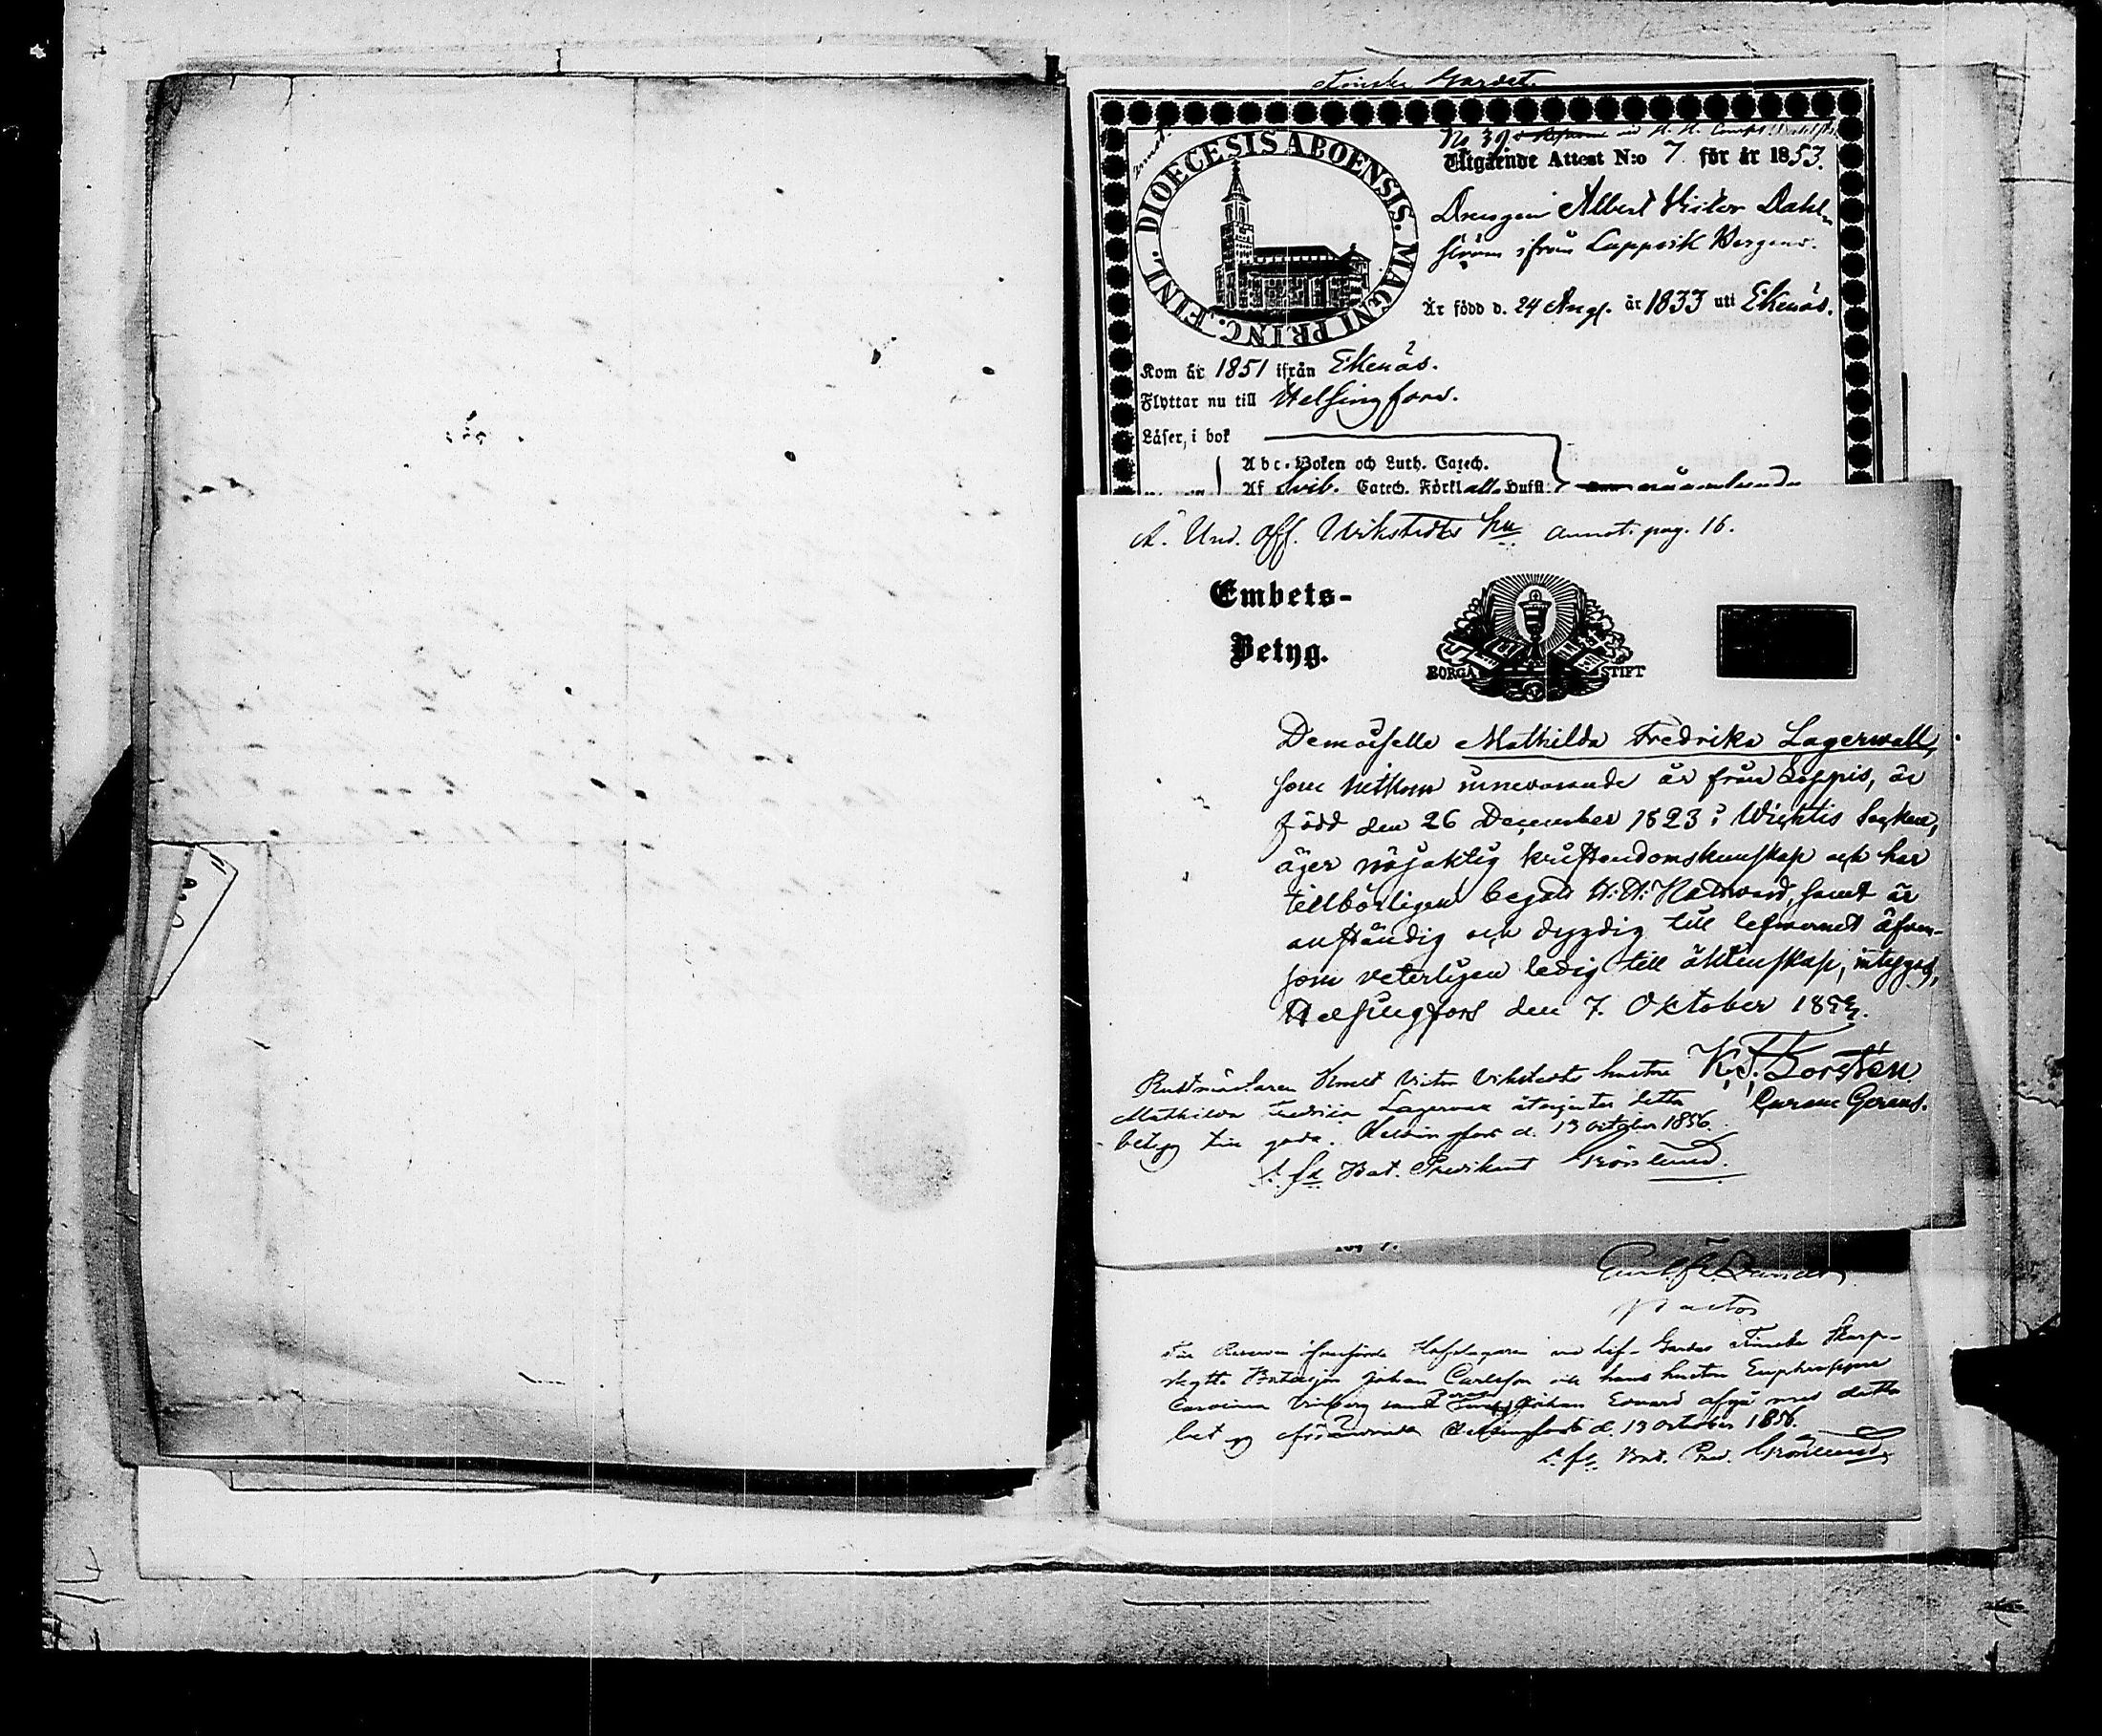 Finska Gardet.
DIOECESIS ABOENSIS. MAGNI PRINC. FINL.
No 39
Utgående Attest N:o 7 för år 1853.
Drengen Albert Victor Dahl-
ström ifrån Lappvik
Är född d. 24 Aug. år 1833 uti Ekenäs.
Kom år 1851 ifrån Ekenäs.
Flyttar nu till Helsingfors.
Läser, i bok
Abc-Boken och Luth. Catech.
Af Svib. Catech. Förkl. Hufst.
Und. Off. Wikstedts hu annot. pag. 16.
Embets-
Betyg.
BORGÅ STIFT
Demoiselle Mathilda Fredrika Lagerwall,
som hitkom innevarande år från Loppis, är
född den 26 December 1823 i Wichtis Socken,
äger nöjaktig kristendomskunskap och har
tillbörligen begått H. H. Nattvard, samt är
anständig och dygdig till lefvernet äfven-
som veterligen ledig till äktenskap, intygas,
Helsingfors den 7. Oktober
K. F. Forstén
Curam Gerens.
Rustmästaren Victor Wikstedts hustru
Mathilda Fredrika Lagerwall detta
betyg till goda. Helsingfors d. 13 October 1856.
Bat. Predikant Grönlund.
Pastor
Hofslagaren vid Lif-Gardes Finska Skarp-
skytte Bataljon Johan Carlsson och hans hustru Euphrosyne
Carolina samt Johan Edvard afgå med detta
betyg Helsingfors d. 13 October 1856.
Bat. Pred. Grönlund